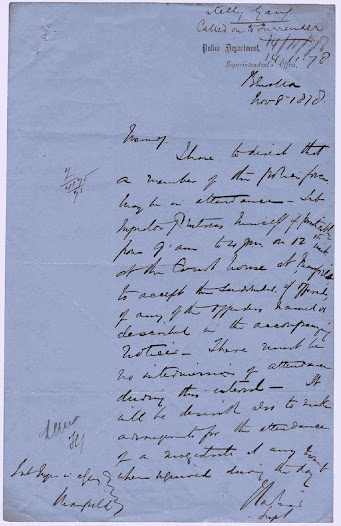 Kelly Gang
Called on to Surrender
14/11/78
Police Department,
Superintendent's Office,
Benalla
Nov 8 1878
I have to direct that
a member of the police force
may be in attendance - Sub
Inspector Pewtress himself if
from 9 am to 4 pm on 12th inst
at the Court house at Mansfield
to accept the surrender, if offered,
of any of the offenders named &
described in the accompanying
notice - There must be
no intermission of attendance
during this interval - It
will be desirable also to make
arrangements for the attendance
of a magistrate at any
when required during the day
Sub Inspr in chge
Mansfield